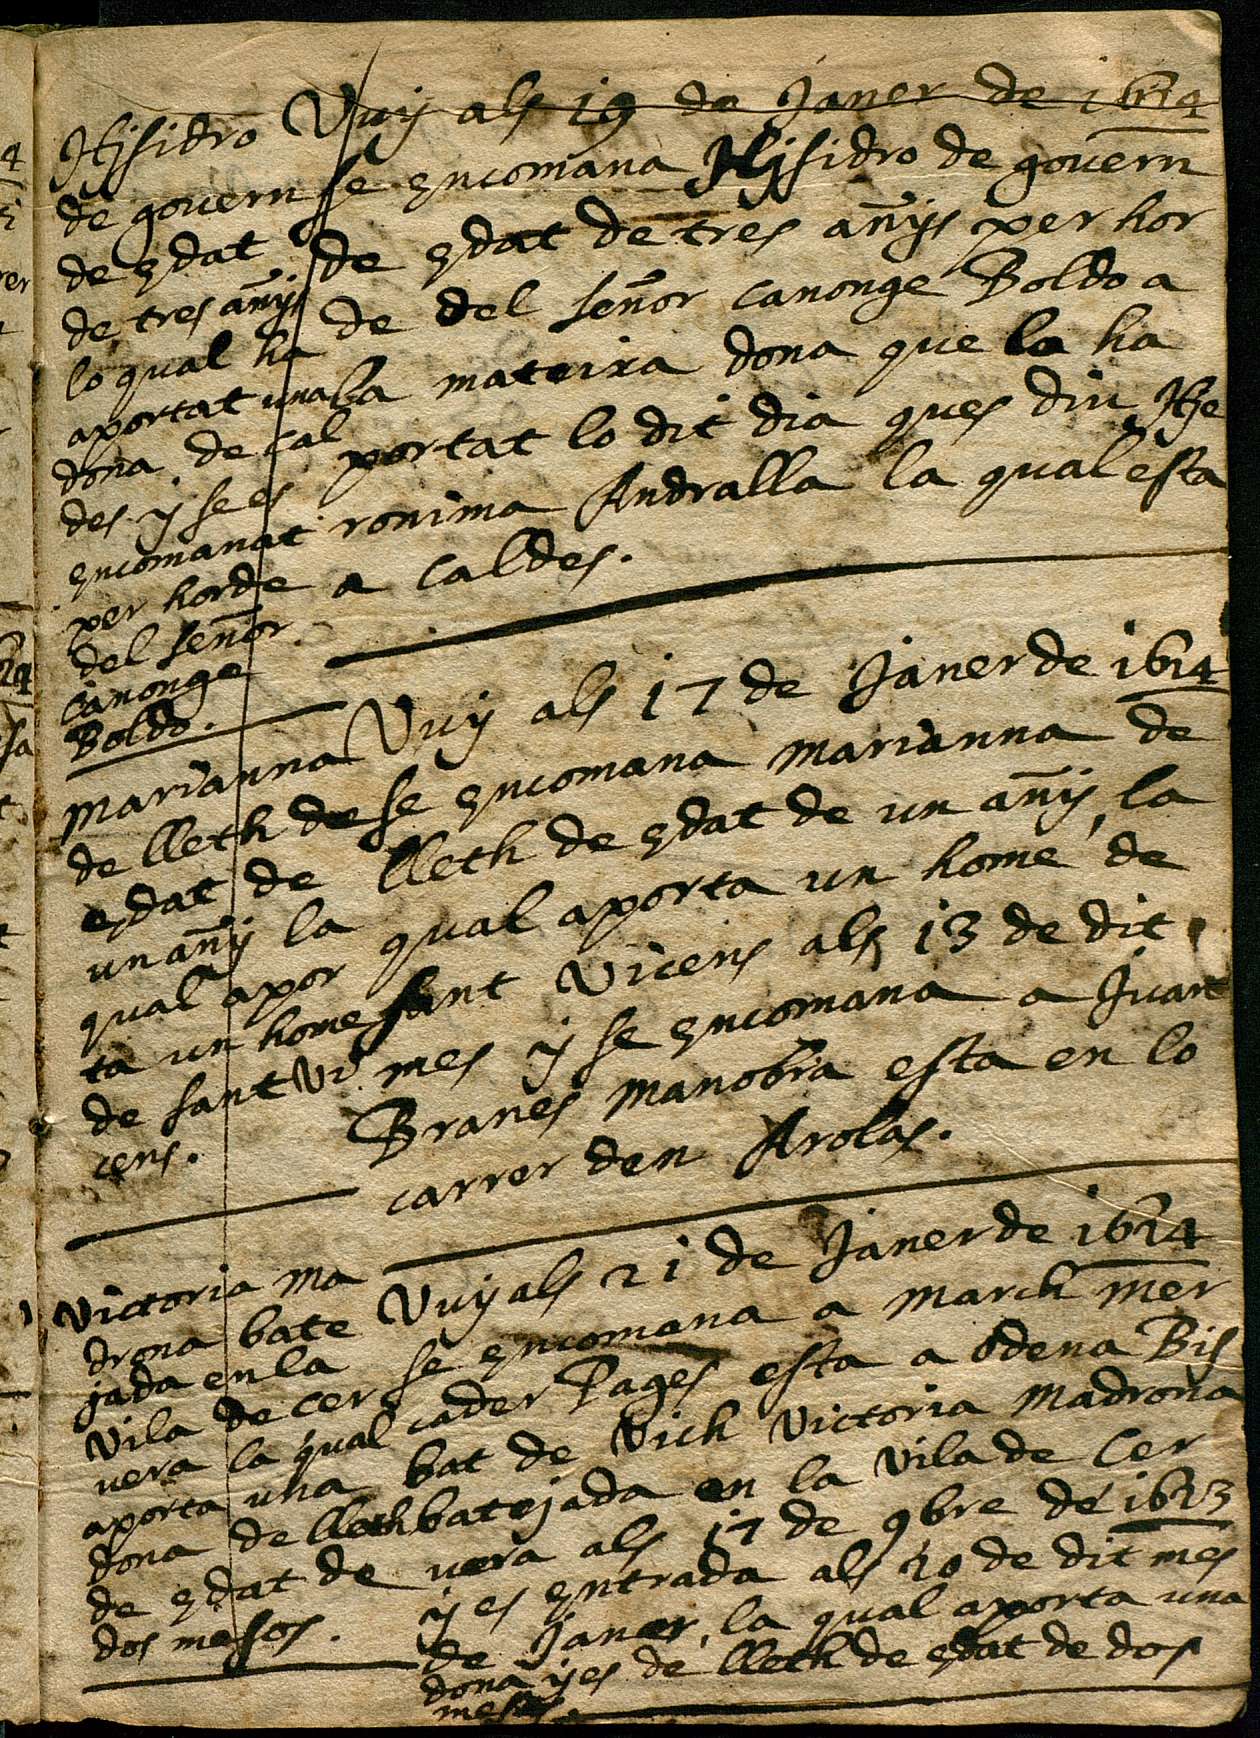 Hjsidro
de govern
de edat
de tres añys
lo qual ha
aportat una
dona de Cal
des y se es
encomanat
per horde
del señor
Canonge
Boldo.
Vuy als 19 de Janer de 1614
se encomana Hjsidro de govern
de edat de tres añys per hor
de del señor Canonge Boldo a
la mateixa dona que la ha
portat lo dit dia ques diu Hje
ronima Andralla la qual esta
a Caldes.
Marianna
de lleth de
edat de
un añy la
qual apor
ta un home
de sant Vi
cens.
Vuy als 17 de Janer de 1614
se encomana Marianna de
lleth de edat de un añy, la
qual aporta un home de
sant Vicens als 13 de dit
mes y se encomana a Juan
Branes manobra esta en lo
carrer den Arolas.
Victoria Ma
drona bate
jada en la
Vila de Cer
vera la qual
aporta una
dona de lleth
de edat de
dos mesos.
Vuy als 21 de Janer de 1614
se encomana a March mer
cader Pages esta a Odena Bis
bat de Vich Victoria Madrona
batejada en la Vila de Cer
vera als 17 de 9bre de 1613
y es entrada als 20 de dit mes
de Janer, la qual aporta una
dona y es de lleth de edat de dos
mesos.